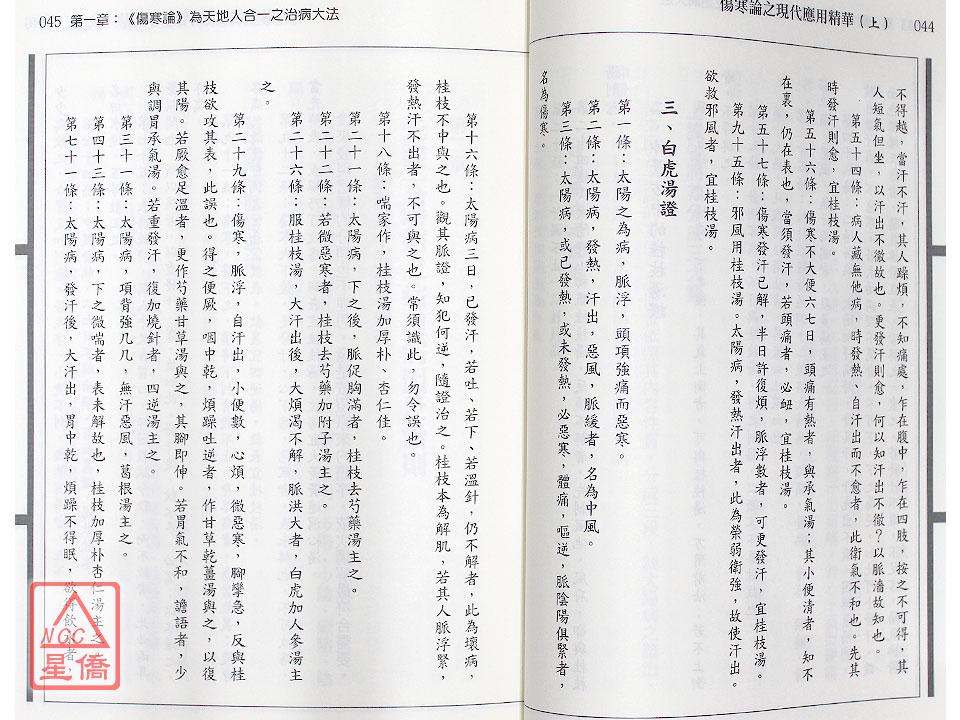 傷寒論之現代應用精華(上) 044
不得越，當汗不汗，其人躁煩，不知痛處，乍在腹中，乍在四肢，按之不可得，其
人短氣但坐，以汗出不徹故也。更發汗則愈，何以知汗出不徹？以脈濇故知也。
第五十四條：病人藏無他病，時發熱、自汗出而不愈者，此衛氣不和也。先其
時發汗則愈，宜桂枝湯。
第五十六條：傷寒不大便六七日，頭痛有熱者，與承氣湯；其小便清者，知不
在裏，仍在表也，當須發汗，若頭痛者，必衄，宜桂枝湯。
第五十七條：傷寒發汗已解，半日許復煩，脈浮數者，可更發汗，宜桂枝湯。
第九十五條：邪風用桂枝湯。太陽病，發熱汗出者，此為榮弱衛強，故使汗出。
欲救邪風者，宜桂枝湯。
三、白虎湯證
第一條：太陽之為病，脈浮，頭項強痛而惡寒。
第二條：太陽病，發熱，汗出，惡風，脈緩者，名為中風。
第三條：太陽病，或已發熱，或未發熱，必惡寒，體痛，嘔逆，脈陰陽俱緊者，
名為傷寒。
045 第一章：《傷寒論》為天地人合一之治病大法
第十六條：太陽病三日，已發汗，若吐、若下、若溫針，仍不解者，此為壞病，
桂枝不中與之也。觀其脈證，知犯何逆，隨證治之。桂枝本為解肌，若其人脈浮緊，
發熱汗不出者，不可與之也。常須識此，勿令誤也。
第十八條：喘家作，桂枝湯加厚朴、杏仁佳。
第二十一條：太陽病，下之後，脈促胸滿者，桂枝去芍藥湯主之。
第二十二條：若微惡寒者，桂枝去芍藥加附子湯主之。
第二十六條：服桂枝湯，大汗出後，大煩渴不解，脈洪大者，白虎加人參湯主
之。
第二十九條：傷寒，脈浮，自汗出，小便數，心煩，微惡寒，腳攣急，反與桂
枝欲攻其表，此誤也。得之便厥，咽中乾，煩躁吐逆者，作甘草乾薑湯與之，以復
其陽。若厥愈足溫者，更作芍藥甘草湯與之，其腳即伸。若胃氣不和，譫語者，少
與調胃承氣湯。若重發汗，復加燒針者，四逆湯主之。
第三十一條：太陽病，項背強几几，無汗惡風，葛根湯主之。
第四十三條：太陽病，下之微喘者，表未解故也，桂枝加厚朴杏仁湯主之。
第七十一條：太陽病，發汗後，大汗出，胃中乾，煩躁不得眠，欲得飲水者，
NCC
星僑